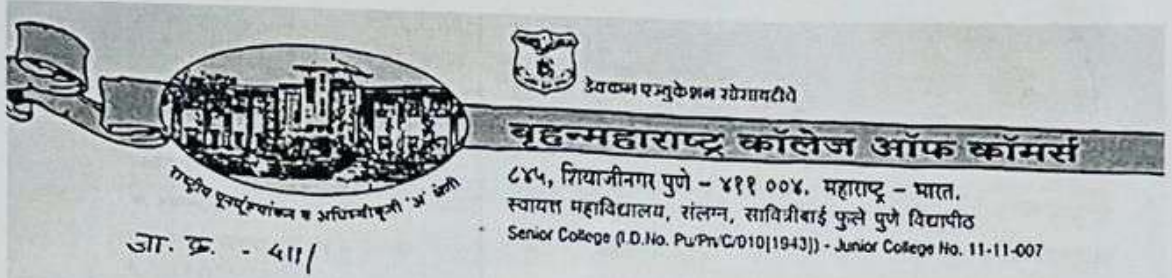 डेक्कन एज्युकेशन सोसायटीचे
बृहन्महाराष्ट्र कॉलेज ऑफ कॉमर्स
८४५, शिवाजीनगर पुणे – ४११ ००४. महाराष्ट्र – भारत.
स्वायत्त महाविद्यालय, संलग्न, सावित्रीबाई फुले पुणे विद्यापीठ
Senior College (I.D.No. Pu/Pn/C/010[1943]) - Junior College No. 11-11-007
राष्ट्रीय पूनर्मूल्यांकन व अधिस्वीकृती 'अ' श्रेणी
जा. क्र. -